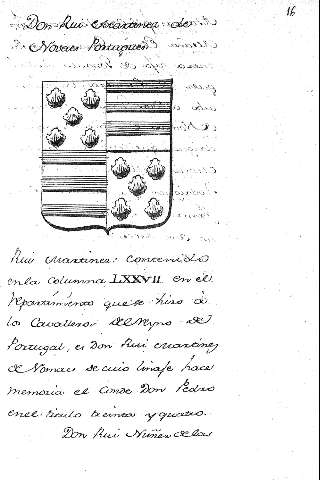 16
Don Rui Martinez de
Novaes Portugues
Rui Martinez: contenido
en la columna LXXVII en el
Repartimiento que se hizo à
los Cavalleros del Reyno de
Portugal, es Don Rui Martinez
de Nomaes de cuio linaje hace
memoria el Conde Don Pedro
en el titulo treinta y quatro.
Don Rui Nuñez de las